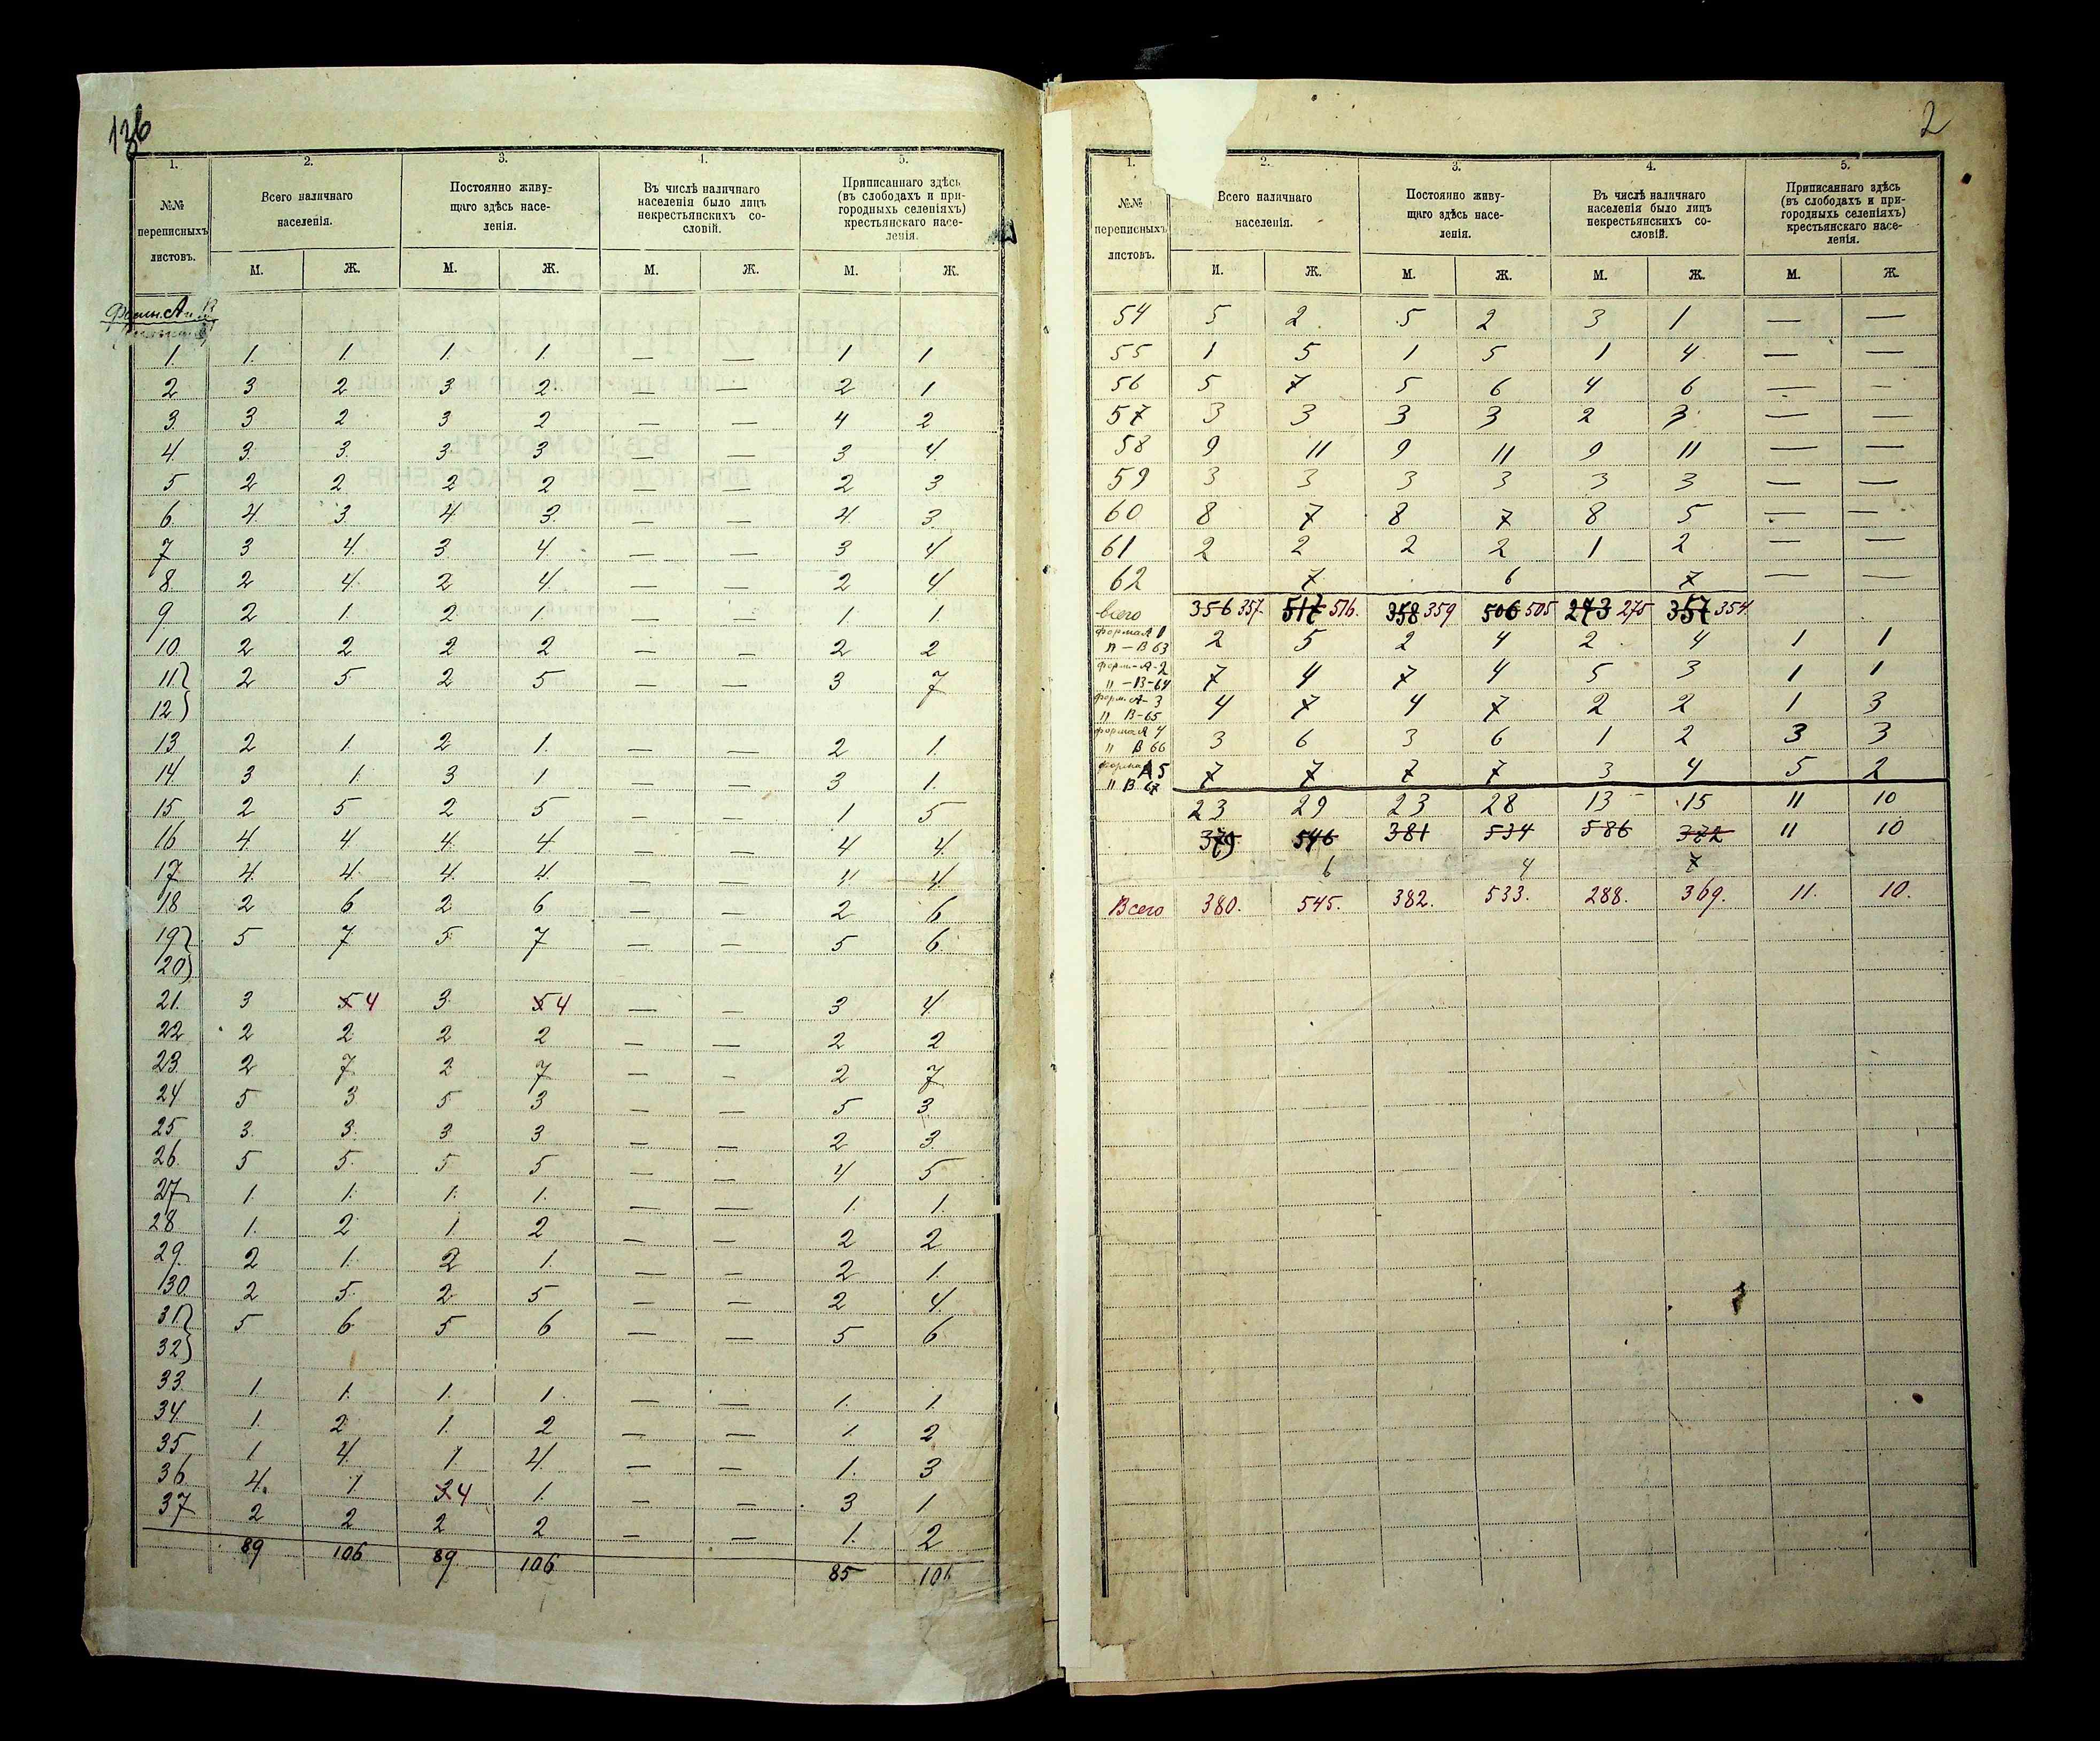 1.
2.
3.
4.
5.
№№ переписныхъ листовъ.
Всего наличнаго населенія.
Постоянно живущаго здѣсь населенія.
Въ числѣ наличнаго населенія было лицъ некрестьянскихъ сословій.
Приписаннаго здѣсь (въ слободахъ и пригородныхъ селеніяхъ) крестьянскаго населенія.
М. Ж. М. Ж. М. Ж. М. Ж.
1. 1. 1 1. 1. — — 1 1
2 3 2 3 2. — — 2 1
3. 3 2 3 2 — — 4 2
4. 3. 3. 3 3 — — 3 4.
5 2 2 2 2 — — 2 3
6. 4. 3. 4 3. — — 4. 3.
7 3 4. 3. 4. — — 3 4
8. 2 4. 2 4. — — 2 4
9 2 1. 2 1. — — 1. 1.
10. 2 2 2 2 — — 2 2
11. 2 5 2 5 — — 3 7
12
13. 2 1. 2 1. — — 2 1.
14. 3 1. 3 1 — — 3 1.
15 2 5 2 5 — — 1 5
16 4. 4 4. 4 — — 4 4.
17. 4. 4. 4. 4 — — 4 4.
18 2 6 2 6 — — 2 6
19 5 7 5 7 — — 5 6.
20
21. 3 5 4 3. 5 4 — — 3 4
22 2 2 2 2 — — 2 2
23. 2 7 2 7 — — 2 7
24 5 3 5 3 — — 5 3.
25 3. 3. 3 3 — — 2 3
26 5 5. 5 5 — — 4 5
27 1. 1. 1. 1. — — 1. 1.
28 1. 2 1 2 — — 2 2
29. 2 1. 2 1. — — 2 1.
30. 2 5. 2 5 — — 2 4.
31. 5 6 5 6 — — 5 6
32
33. 1. 1. 1. 1. — — 1. 1
34. 1. 2 1. 2 — — 1. 2
35 1 4. 1 4. — — 1. 3
36. 4. 1 3 4 1. — — 3 1.
37 2 2 2 2 — — 1. 2
89 106 89 106 85
2
1.
2.
3.
4.
5.
№№ переписныхъ листовъ.
Всего наличнаго населенія.
Постоянно живущаго здѣсь населенія.
Въ числѣ наличнаго населенія было лицъ некрестьянскихъ сословій.
Приписаннаго здѣсь (въ слободахъ и пригородныхъ селеніяхъ) крестьянскаго населенія.
М. Ж. М. Ж. М. Ж. М. Ж.
54 5 2. 5 2 3 1 — —
55 1 5 1 5 1 4 — —
56 5 7 5 6 4 6 — —
57 3 3 3 3 2 3 — —
58 9 11 9 11 9 11 — —
59 3 3 3 3 3 3 — —
60 8 7 8 7 8 5 — —
61 2 2 2 2 1 2 — —
62 7 6 7 — —
Всего 356 357. 517 516. 358 359 506 505 273 275 357 354
форма А 1
" — В 63 2 5 2 4 2 4 1 1
форм-А-2
" — В-64 7 4 7 4 5 3 1 1
форм. А-3
" В-65 4 7 4 7 2 2 1 3
форма А 4
" В 66 3 6 3 6 1 2 3 3
форма А 5
" В 67 7 7 7 7 3 4 5 2
23 29 23 28 13 15 11 10
379 546 381 534 586 372 11 10
6 4 7
Всего 380. 545. 382. 533. 288. 369. 11. 10.